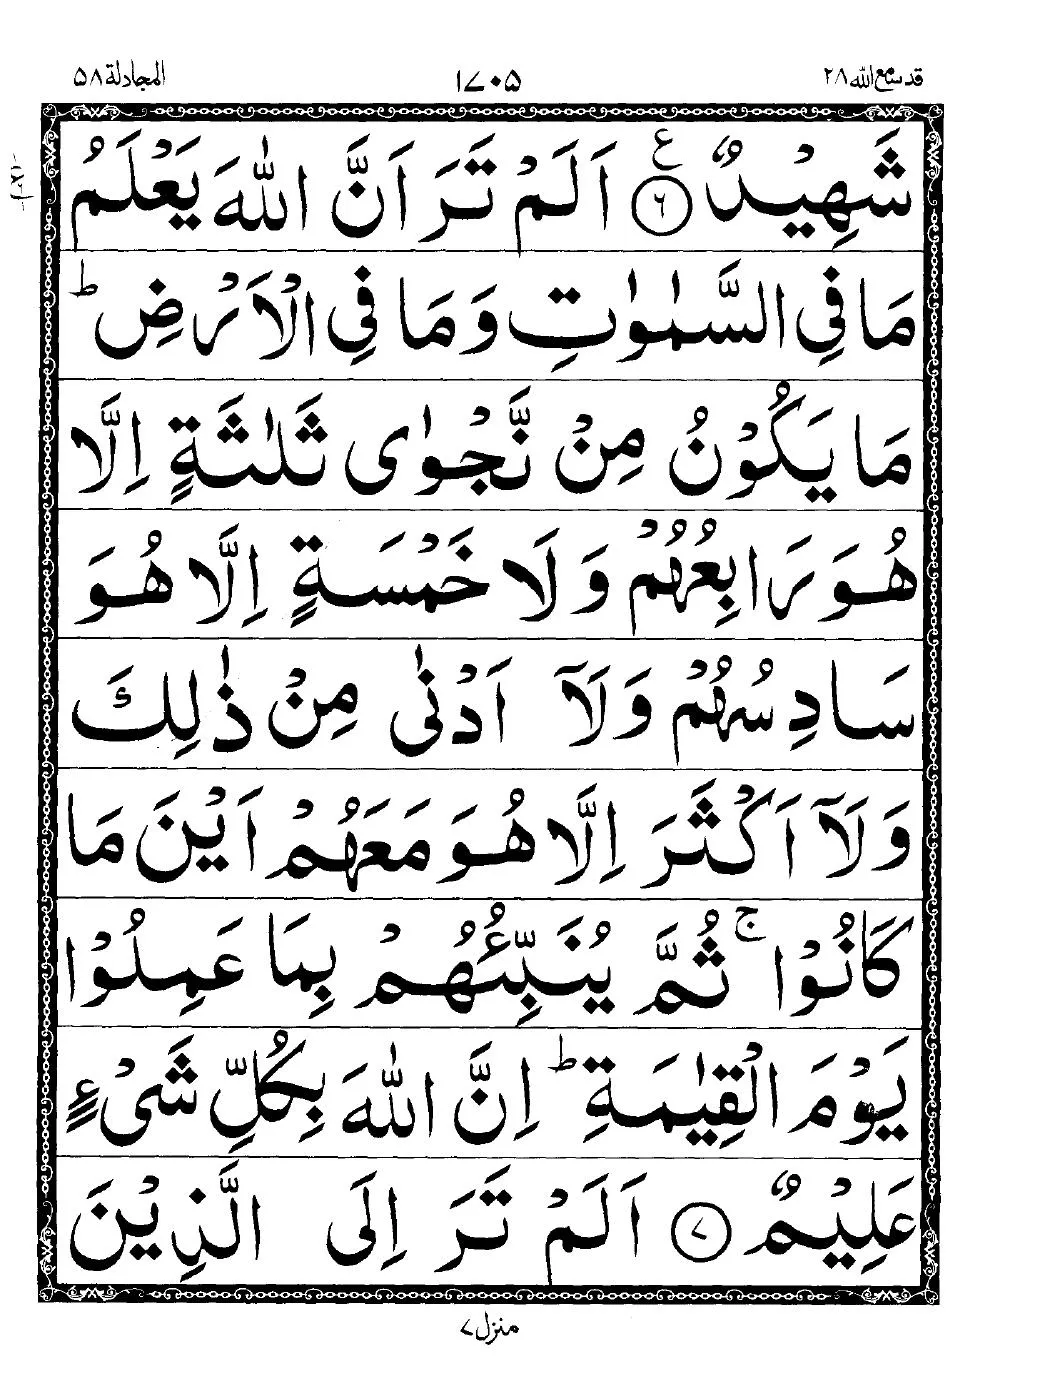 المجادلة ۵۸ ۱۷۰۵ قد سمع الله ۲۸
شَهِيْدٌ ﴿۶﴾ ع اَلَمْ تَرَ اَنَّ اللّٰهَ يَعْلَمُ
مَا فِي السَّمٰوٰتِ وَمَا فِي الْاَرْضِ ؕ
مَا يَكُوْنُ مِنْ نَّجْوٰى ثَلٰثَةٍ اِلَّا
هُوَ رَابِعُهُمْ وَلَا خَمْسَةٍ اِلَّا هُوَ
سَادِسُهُمْ وَلَاۤ اَدْنٰى مِنْ ذٰلِكَ
وَلَاۤ اَكْثَرَ اِلَّا هُوَ مَعَهُمْ اَيْنَ مَا
كَانُوْا ۚ ثُمَّ يُنَبِّئُهُمْ بِمَا عَمِلُوْا
يَوْمَ الْقِيٰمَةِ ؕ اِنَّ اللّٰهَ بِكُلِّ شَىْءٍ
عَلِيْمٌ ﴿۷﴾ اَلَمْ تَرَ اِلَى الَّذِيْنَ
منزل ۷